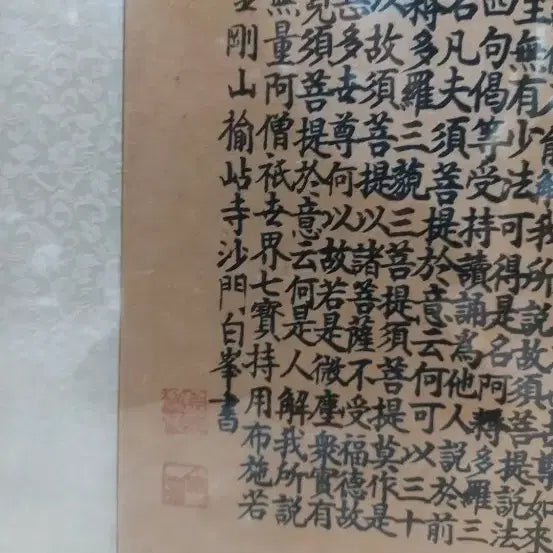 尊如來
能解我所說故須菩提說法
無有少法可得是名阿耨多羅三
四句偈等受持讀誦為他人說於前
名凡夫須菩提於意云何可以三十
耨多羅三藐三菩提須菩提莫作是
以故須菩提以諸菩薩不受福德故
多世尊何以故若是微塵眾實有
見須菩提於意云何是人解我所說
無量阿僧祇世界七寶持用布施若
金剛山榆岾寺沙門白峯書